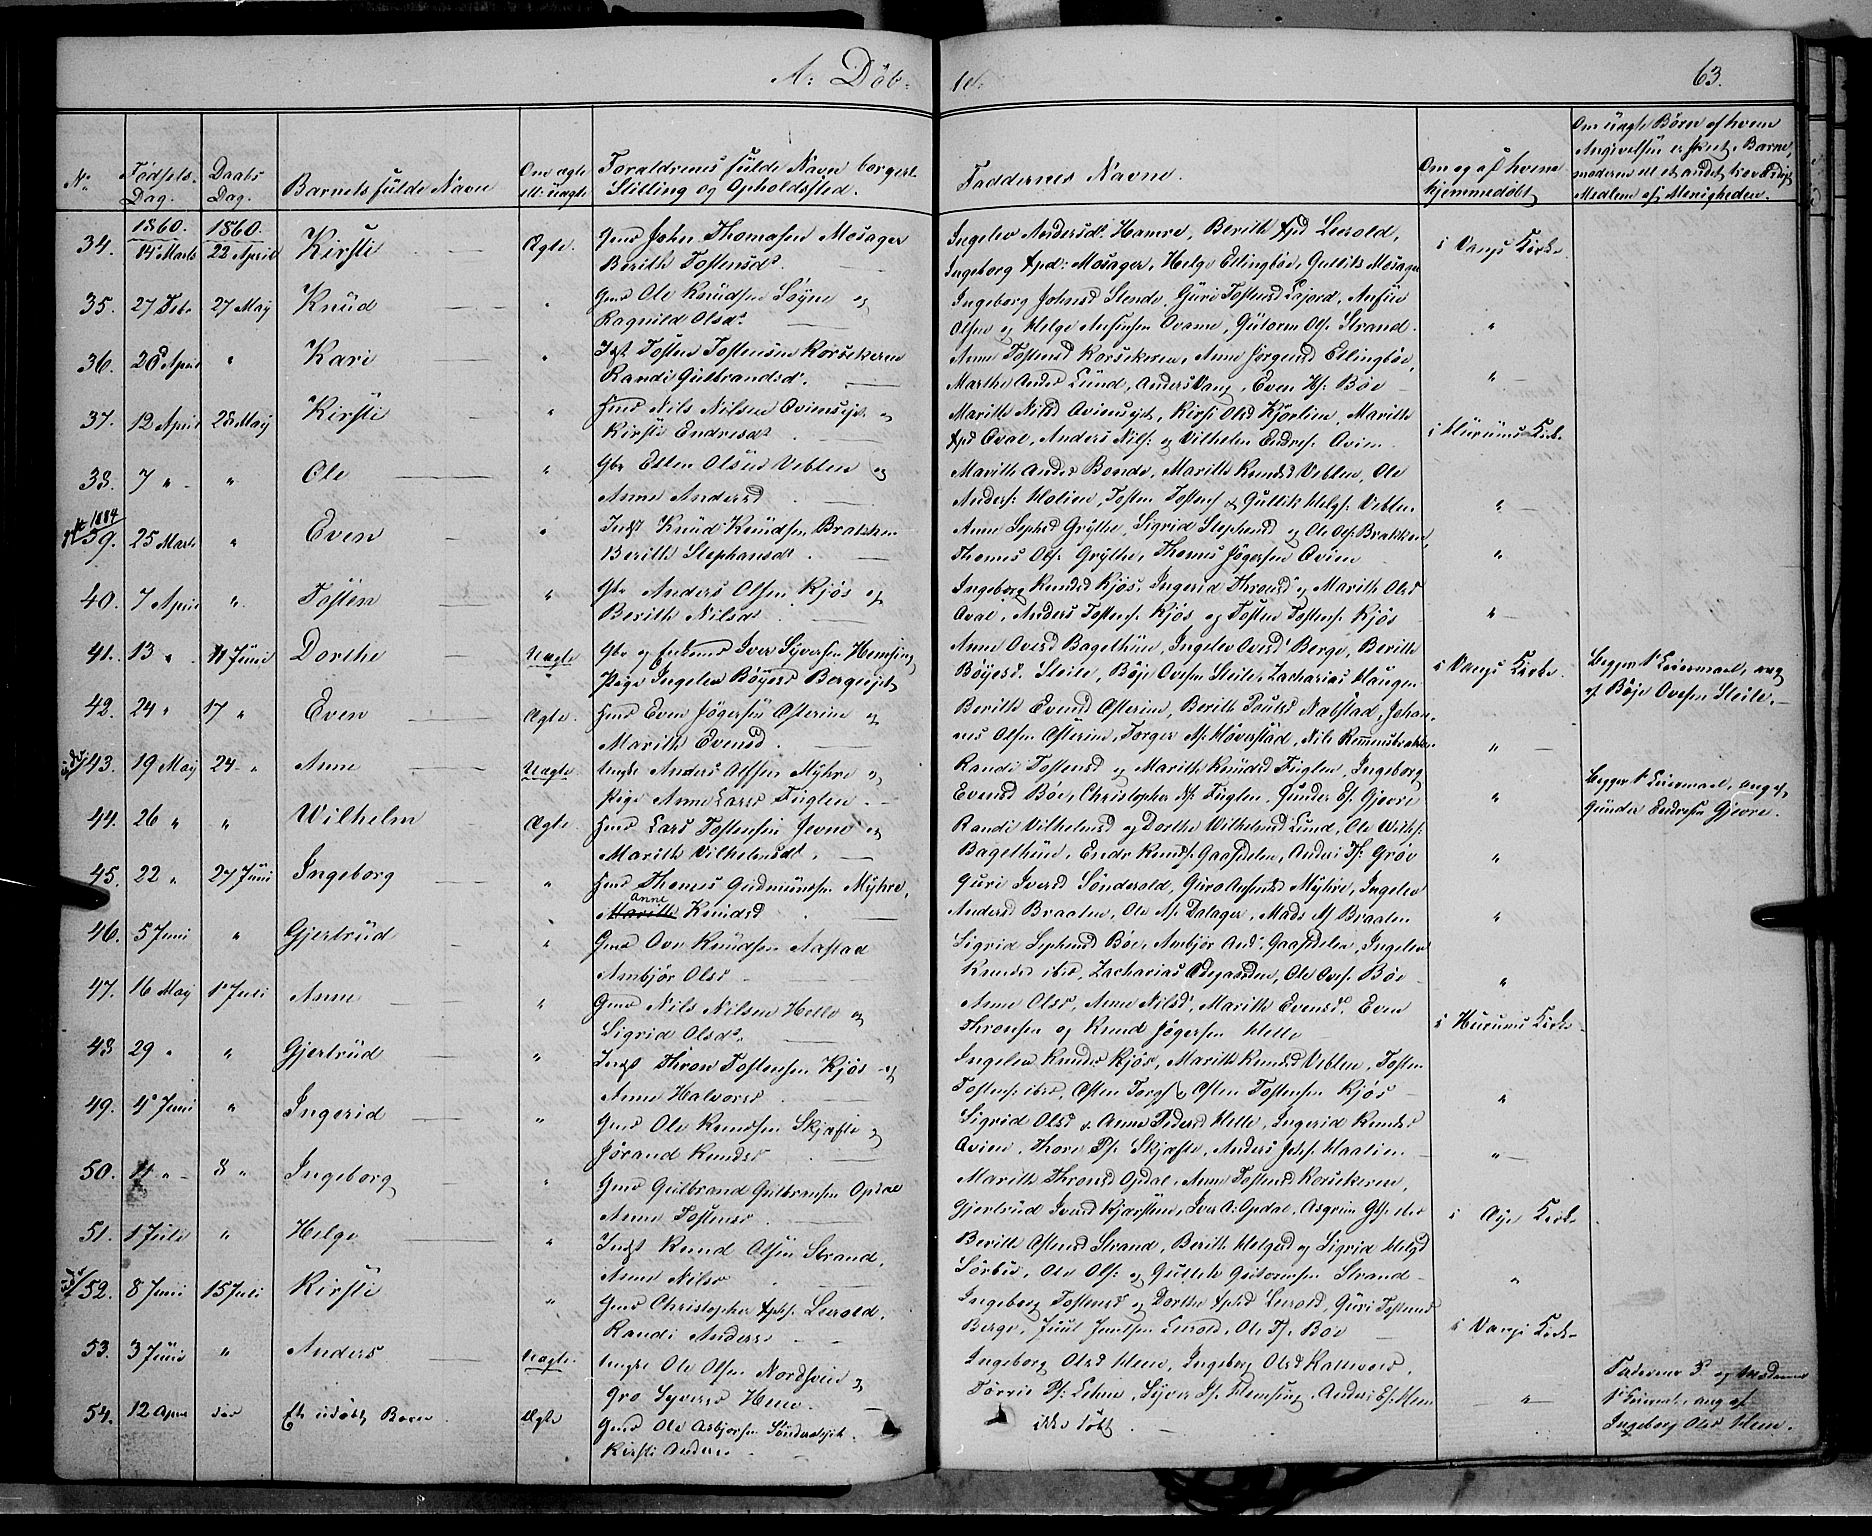 A: Döb- te. 63.
No Fødsels- Dag. Daabs Dag. Barnets fulde Navn Om ægte ell: uægte Forældrenes fulde Navn borgerl. Stilling og Opholdssted. Faddernes Navne. Om og af hvem hjemmedøbt Om uægte Børn af hvem Angivelsen er skeet, Barne-
moderen ell et andet troværdigt
Medlem af Menigheden.
1860. 1860.
34. 14 Marts 22 April Kirsti Ægte. Gmd John Thomasen Mosager
Berith Tostensdr.
Ingelev Andersdr. Hamre, Berith Leerold,
Ingeborg Mosager, Helge Ellingbøe, Gullik Mosager
i Vangs Kirke
35. 27 Febr 27 May Knud " Gmd Ole Knudsen Søyne og
Ragnild Olsdr.
Ingeborg Johnsd Steude, Guri Tostensd Lajord,
Olsen og Helge Ovame, Guttorm Ols. Strand.
"
36. 20 April " Kari " Inst Tosten Tostensen Korsekeren
Randi Gulbrandsdr.
Anne Tostensd Korsekeren, Anne Ellingbøe,
Marthe Andsd Lund, Anders Vang, Even Bøe
"
37. 12 April 28 May Kirsti " Gmd Nils Nilsen Aviensyet og
Kirsti Endresdr.
Marith Nilsd Aviensyet, Kirsti Olsd Kjørlien, Marith
Qval, Anders Nils: og Vilhelm Endres: Avien
i Hurums Kirke
38. 7 " " Ole " Gbr Ellen Olsen Veblen og
Anne Andersd
Marith Andsd Bonde, Marith Knudsd Veblen, Ole
Anders: Holien, Tosten Tostens & Gullik Helges: Veblen
"
39. 25 Marts " Even " Inst Knud Knudsen Brakken
Berith Stephansdr.
Anne Sephsd Grythe, Sigrid Stephensd og Ole Ols: Brakken,
Thomes Ols: Grythe, Thomes Jøgersen Avien
"
40. 7 April " Tosten " Gbr Anders Olsen Kjøs og
Berith Nilsd
Ingeborg Knudsd Kjøs, Ingerid Thronsd og Marith Olsd
Qval, Anders Tostens: Kjøs og Tosten Tostens: Kjøs
"
41. 13 " 11 Juni Dorthe Uægte Gbr og Enkemd Iver Syversen Hemsing
Pige Ingelev Böyesd Bergesyet
Anne Ovesd Bagethun, Ingelev Ovesd Berge, Berith
Böyesd. Steile, Böje Ovesen Steile, Zacharias Haugen
i Vangs Kirke. Begges 1st Leiermaal, ang
af Böje Ovesen Steile.
42. 24 " 17 " Even Ægte. Gmd Even Jögersen Asterim og
Marith Evensd.
Berith Evensd Asterim, Berith Paulsd Nalstad, Johan-
nes Olsen Asterim, Torger As: Høverstad, Nils Remmensbrakken
"
43. 19 May 24 " Anne Uægte. Ungkr Anders Olsen Myhre og
Pige Anne Larsd Fuglen.
Randi Tostensd og Marith Knudsd Fuglen, Ingeborg
Evensd Bøe, Christopher Fuglen, Gunder Es: Gjevre
" Begges 1st Leiermaal, ang af
Gunder Endresen Gjevre.
44. 26 " " Wilhelm Ægte. Gmd Lars Tostensen Jevne og
Marith Vilhelmsdr.
Randi Vilhelmsd og Dorthe Wilhelmsd Lund, Ole Wilh:
Bagethun, Endr Knuds: Gaasdelen, Anders Ts: Grøv
"
45. 22 " 24 Juni Ingeborg " Gmd Thomes Gudmundsen Myhre,
Marith Anne Knudsd
Guri Iversd Sönderold, Guro Myhre, Ingelev
Andersd Braaten, Ole As: Dalager, Mads As: Braaten
"
46. 5 Juni " Gjertrud " Gmd Ove Knudsen Aastad
Ambjør Olsd
Sigrid Sephensd Bøe, Ambjør And. Gaasdelen, Ingelev
Knudsd ibid, Zacharias Ødegaarden, Ole Oves: Bøe
"
47. 16 May 1 Juli Anne " Gmd Nils Nilsen Helle og
Sigrid Olsdr.
Anne Olsd, Anne Nilsd, Marith Evensd, Even
Thronsen og Knud Jögersen Helle
i Hurums Kirke
48. 29 " " Gjertrud " Inst Thron Tostensen Kjøs og
Anne Halvorsd
Ingelev Knudsd Kjøs, Marith Knudsd Veblen, Tosten
Tostens: ibid, Osten Torgs & Osten Tostensen Kjøs
"
49. 4 Juni " Ingerid " Gmd Ole Knudsen Skjefte og
Jörand Knudsd
Sigrid Olsd & Anne Pedersd Helle, Ingerid Knudsd
Avien, Thore Ps: Skjefte, Anders Haalien
"
50. 11 " 8 " Ingeborg " Gmd Gulbrand Gulbransen Opdal
Anne Tostensd
Marith Thronsd Opdal, Anne Tostensd Korsekeren,
Gjertrud Iversd Kjørstein, Iver A: Opdal, Asgrim Gs: ibid
i Øye Kirke
51. 1 Juli " Helge " Inst Knud Olsen Strand,
Anne Nilsd
Berith Ostensd Strand, Berith Helgesd og Sigrid Helgesd
Sörbøe, Ole Ols: og Gullik Guttormsen Strand
"
52. 8 Juni 15 Juli Kirsti " Gmd Christopher Leerold,
Randi Andersd
Ingeborg Tostensd og Dorthe Leerold, Guri Tostensd
Berge, Juul Juulsen Leerold, Ole Ts: Bøe
i Vangs Kirke
53. 3 Juni " Anders Uægte. Ungkr Ole Olsen Nordsveen og
Gro Syversd Heen.
Ingeborg Olsd Heen, Ingeberg Olsd
Torris Ps: Lehne, Syver Ps: Hemsing, Anders Es: Heen
" Faderens 3d og Moderens
1st Leiermaal, ang af
Ingeborg Olsd Heen.
54. 12 April død Et udøbt Barn. Ægte Gmd Ole Asbjørsen Sönderolsyet.
Kirsti Andersd.
ikke døbt